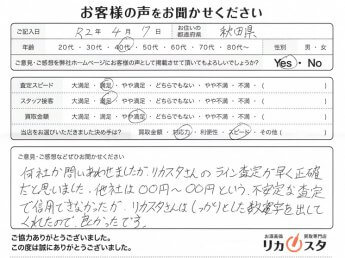 お客様の声をお聞かせください
ご記入日 R2年 4月 7日 お住いの都道府県 秋田県
年齢 20代・30代・40代・50代・60代・70代・80代〜 性別 男・女
ご意見・ご感想を弊社ホームページにお客様の声として掲載させて頂いてもよろしいでしょうか? Yes・No
査定スピード 大満足・満足・どちらでもない・やや不満・不満・( )
スタッフ接客 大満足・満足・どちらでもない・やや不満・不満・( )
買取金額 大満足・満足・どちらでもない・やや不満・不満・( )
当店をお選びいただきました決め手は? 買取金額・対応力・利便性・スピード・その他( )
ご意見・ご感想などぜひお聞かせください
何社か問いあわせましたが、リカスタさんのライン査定が早く正確
だと思いました。他社は〇〇円〜〇〇円という、不安定な査定
で信用できなかったが、リカスタさんはしっかりとした数字を出して
くれたので、良かったです。
ご協力ありがとうございました。
この度は誠にありがとうございました。
お酒高価買取専門店
リカスタ